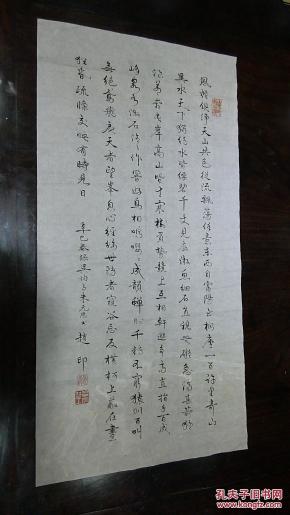 風煙俱淨天山共色從流飄蕩任意東西自富陽至桐廬一百許里奇山
異水天下獨絕水皆縹碧千丈見底游魚細石直視無礙急湍甚箭猛
浪若奔夾岸高山皆生寒樹負勢競上互相軒邈爭高直指千百成
峰泉水激石泠泠作響好鳥相鳴嚶嚶成韻蟬則千轉不窮猿則百叫
無絕鳶飛戾天者望峯息心經綸世務者窺谷忘反橫柯上蔽在晝
猶昏疏條交映有時見日 辛巳春録吳均与朱元思書 趙印